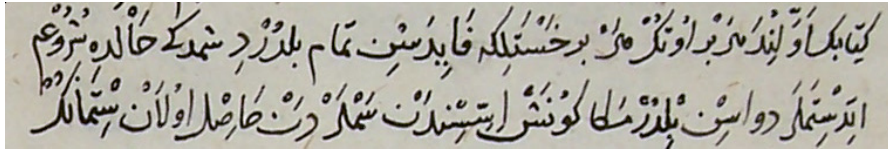 كِتَابك اَوَّلِنْدَ هَرْ بر اوتكُ هَرْ بر خَسْتَلِكه فَايِدَسِن تمام بلدُرْدِ شمدكى حَالْده شُرُوعْم
ايدِسْتَمَلَر دواسِن بِلْدُرْ مَسَلا كُونَشْ اسِسِّندَنْ سَمْلَرْدَنْ حَاصِل اولَانْ سِتْمَانُكْ